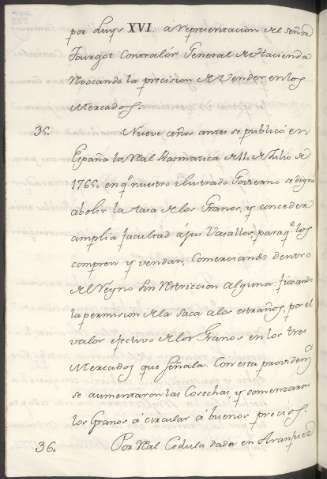 por Luys XVI a representacion del Señor
Turgot Contralór General de Hacienda
la precision de Vender en los
Mercados.
35. Nueve años antes se publicó en
España la Rl Pracmatica de 11 de Julio de
1765. en qe nuestro ilustrado Soverano se digno
abolir la tasa de los Granos, y conceder
amplia facultad á sus Vasallos, para qe los
compren y vendan, Comerciando dentro
del Reyno sin restriccion alguna: fixando
la permision de la Saca á los extraños, por el
valor efectivo de los Granos en los tres
Mercados que señala. Con esta provida
se aumentaron las Cosechas, y comenzaron
los Granos á circular á buenos precios.
36. Por Real Cedula dada en Aranjuez